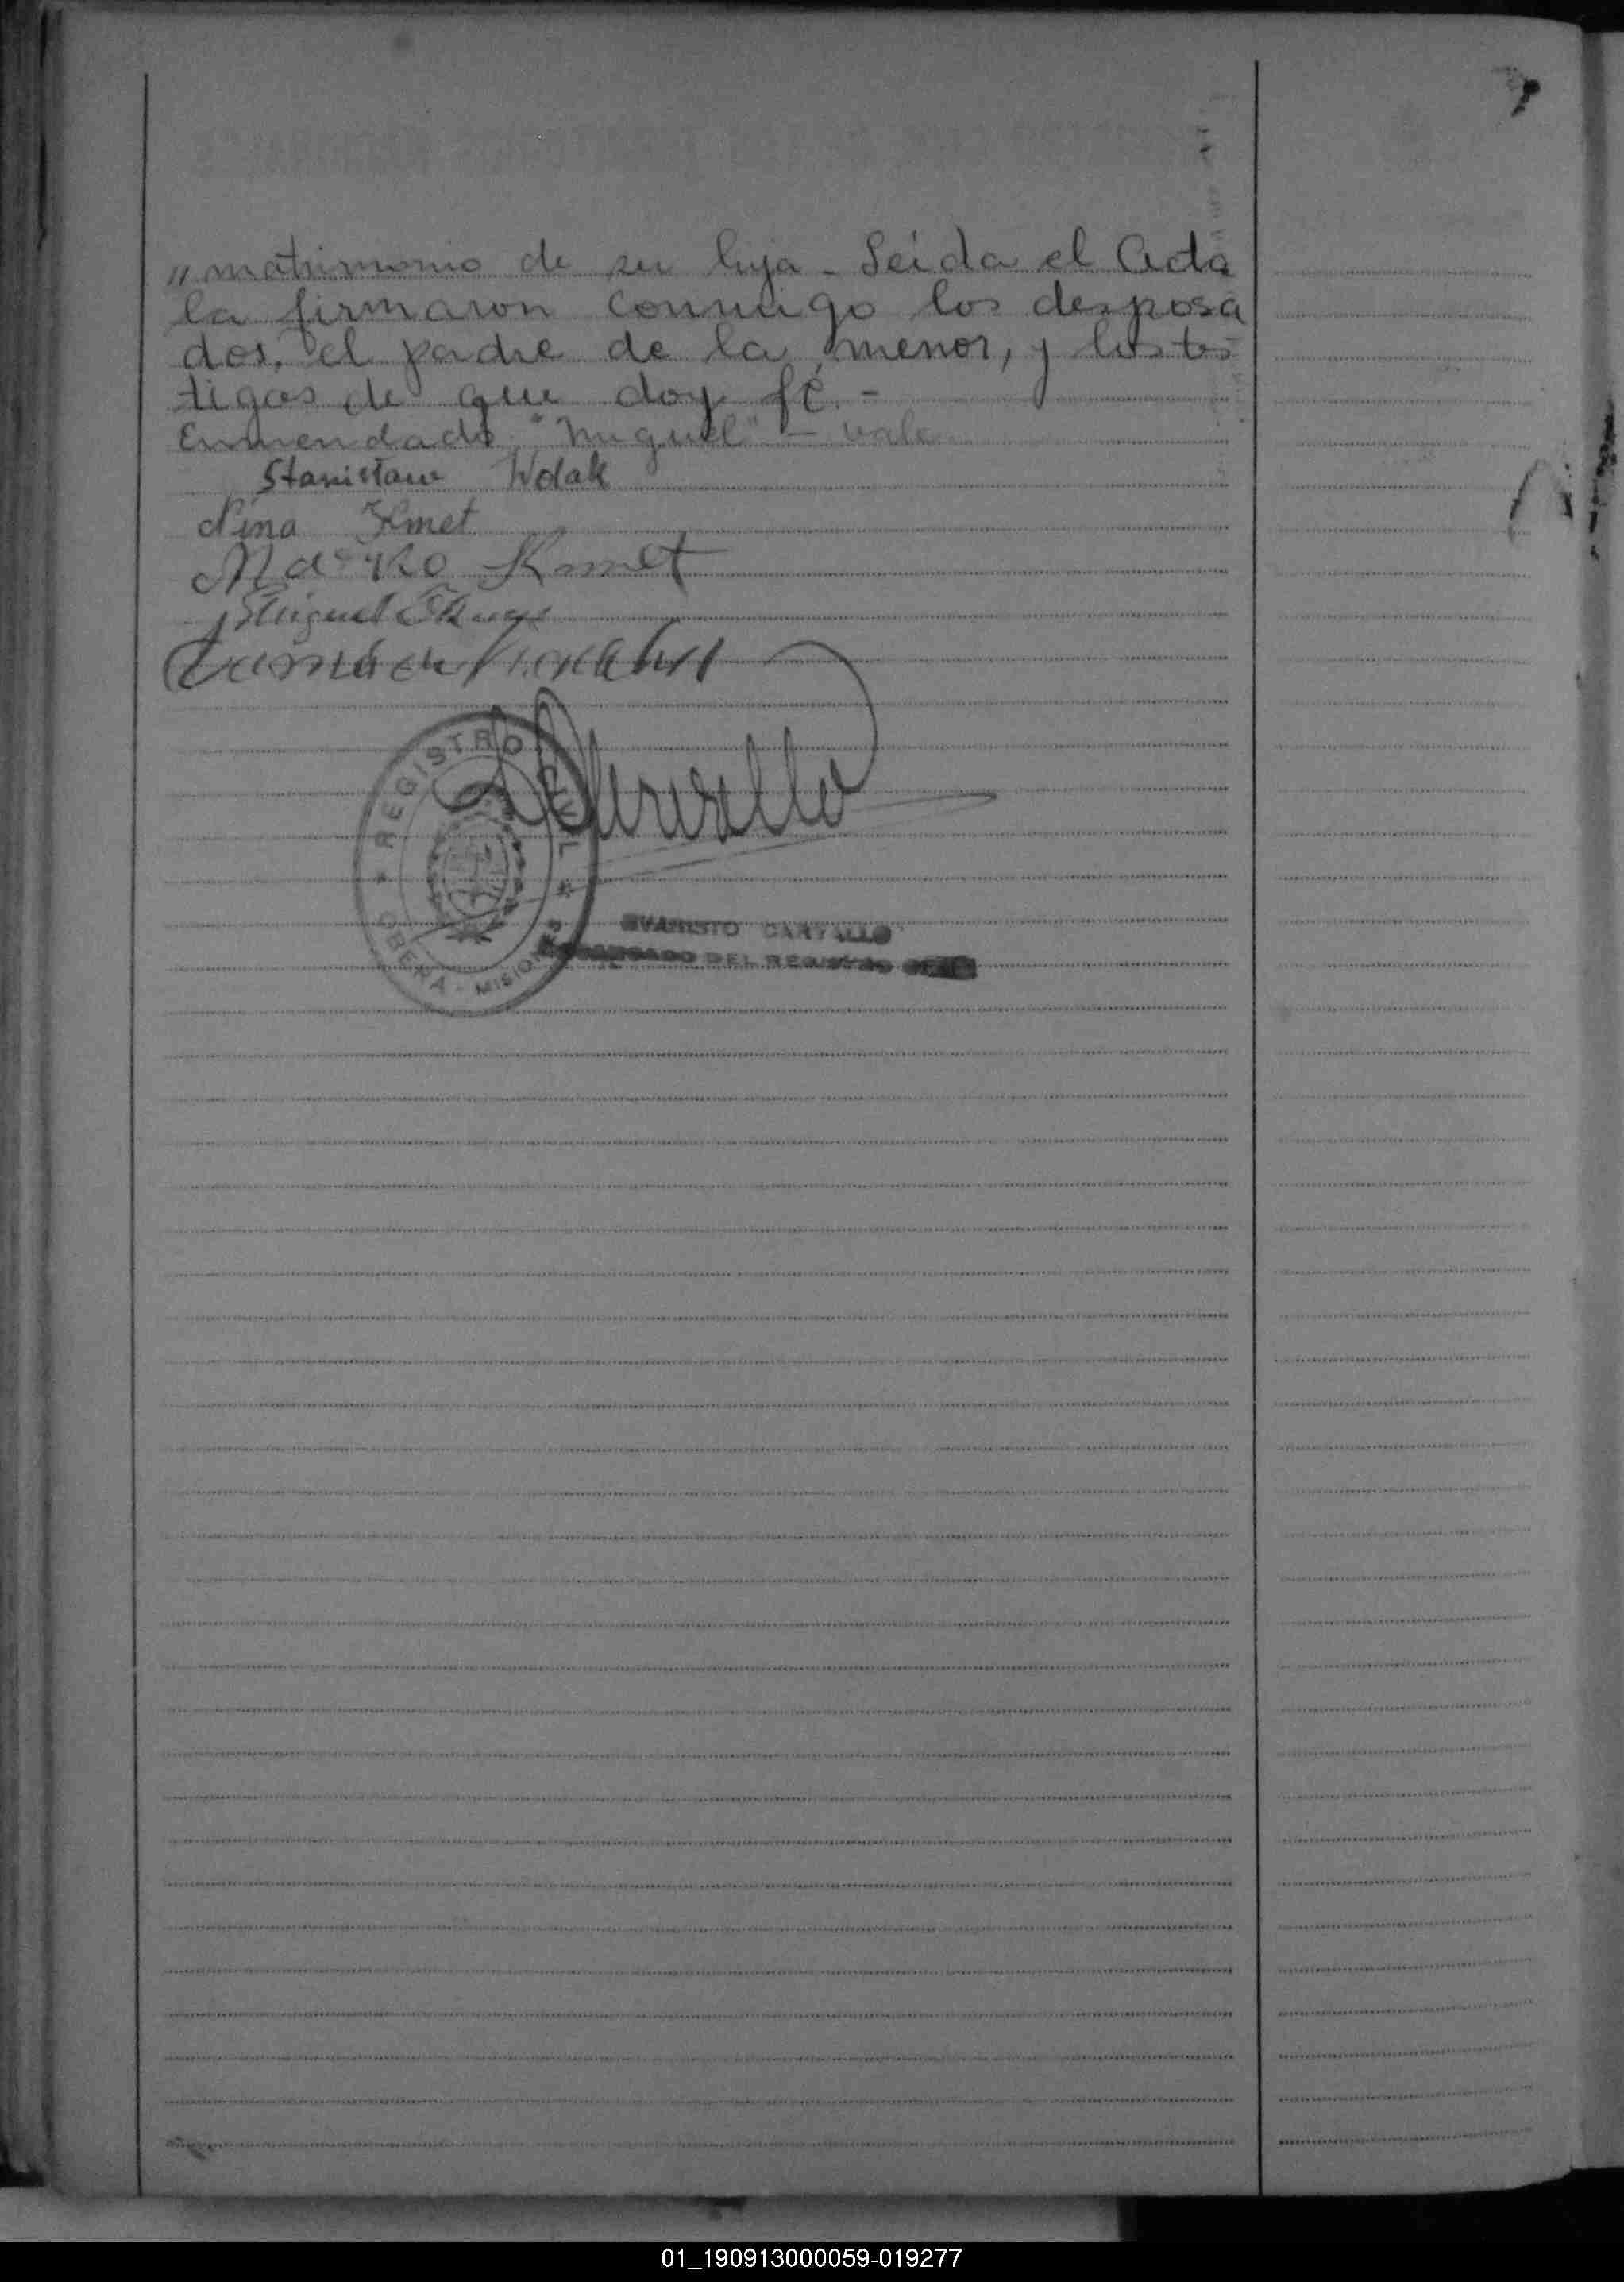 " matrimonio de su hija - Leida el Acta
la firmaron conmigo los desposa
dos, el padre de la menor, y los tes
tigos de que doy fé. -
Enmendado "Miguel" - vale
Stanisław Wolak
Nina Kmet
Marko Kmet
Miguel
REGISTRO CIVIL
OBERA - MISIONES
EVARISTO CARVALLO
ENCARGADO DEL REGISTRO CIVIL
01_190913000059-019277